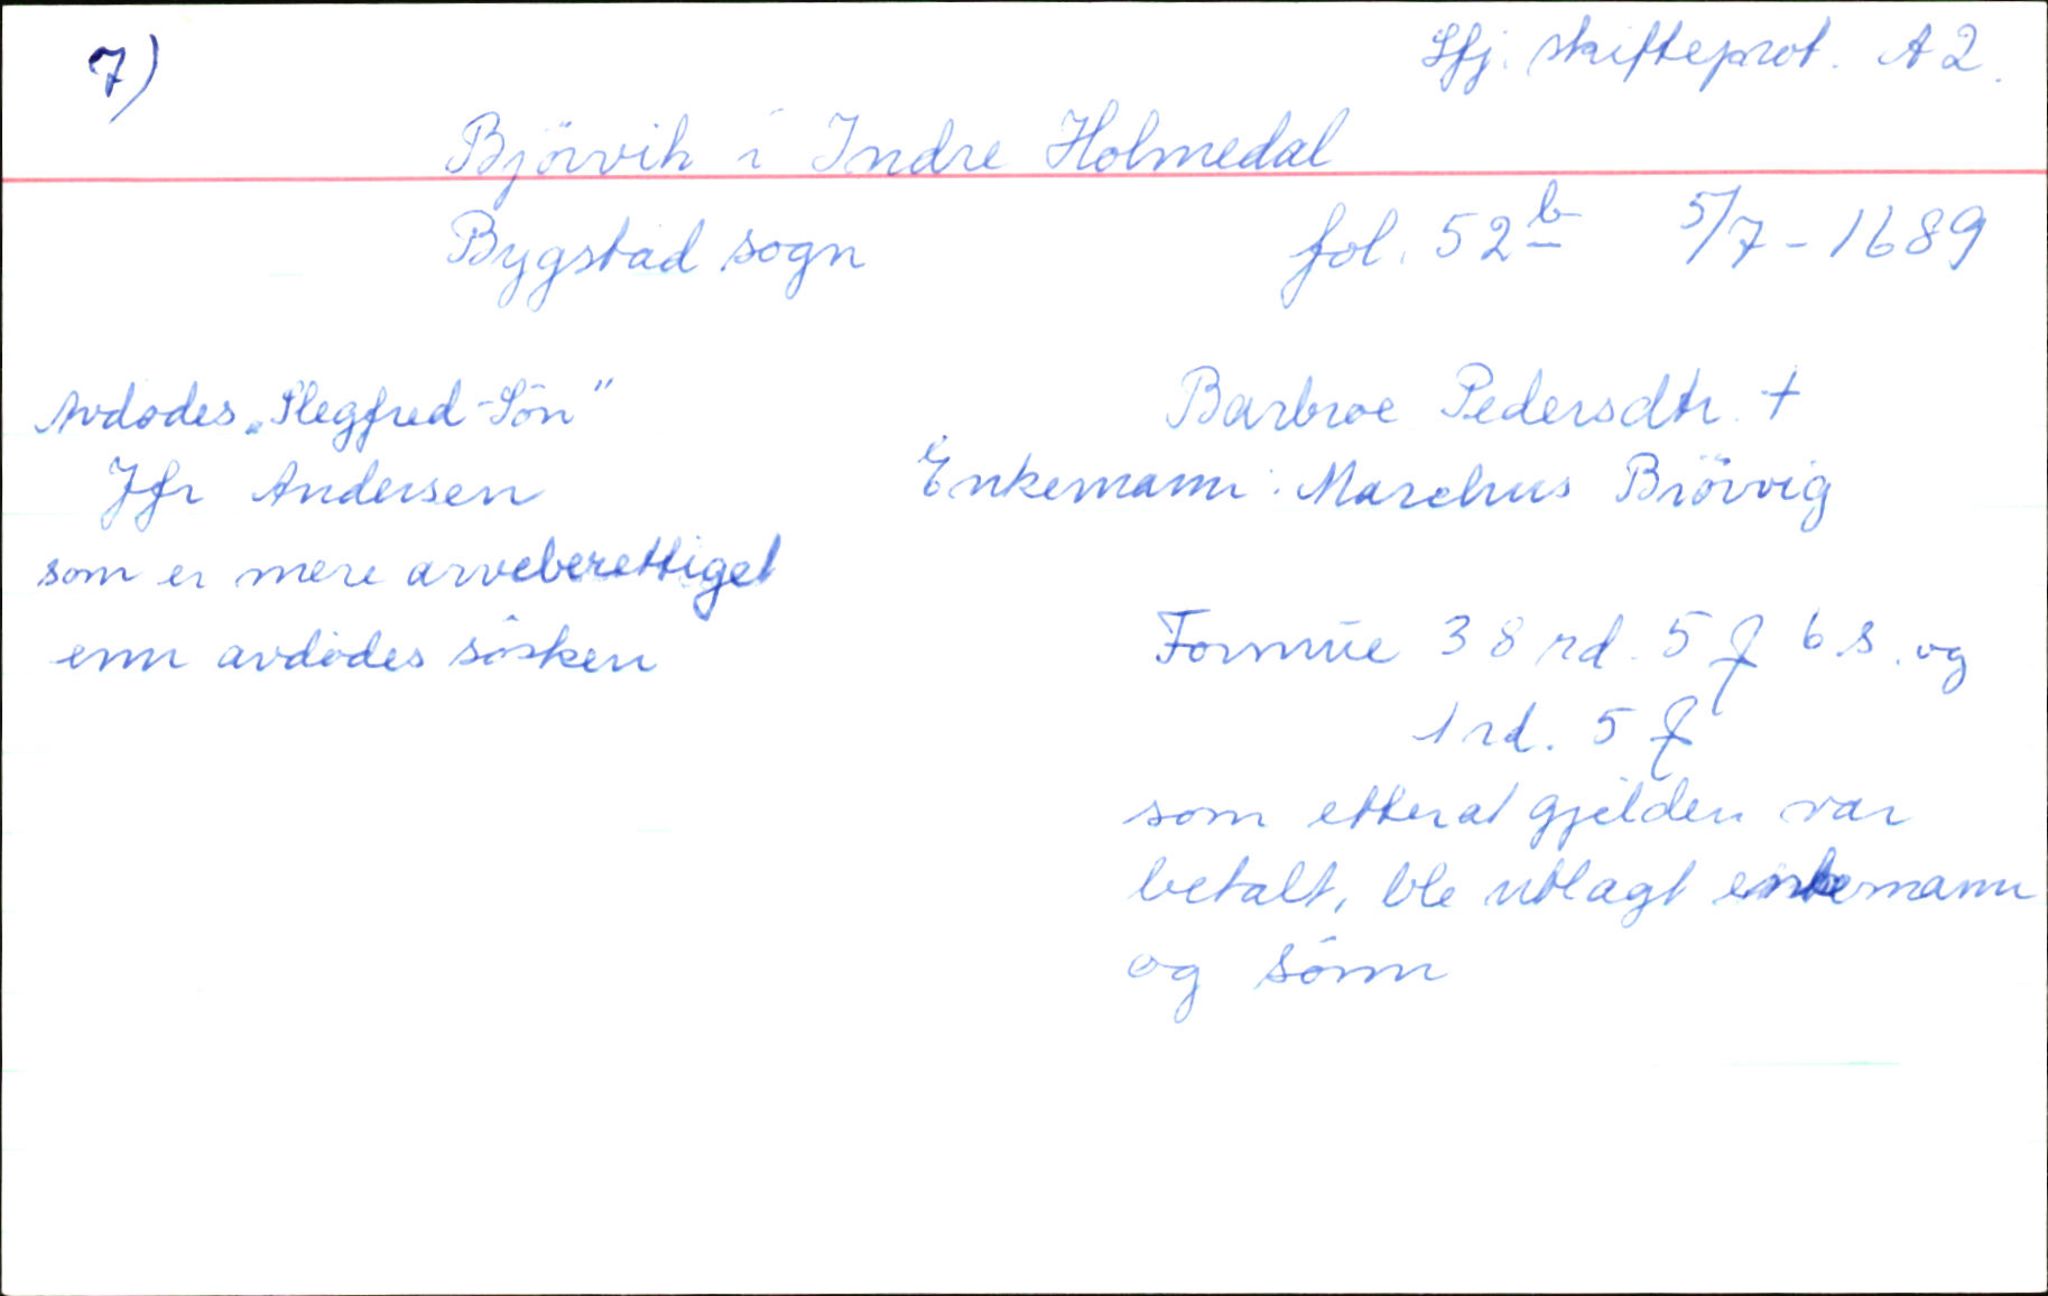 7)
Sfj. skifteprot. A 2.
Björvik i Indre Holmedal
Bygstad sogn
fol. 52 b 5/7 - 1689
Avdødes „Slegfred-Sön"
Ifr Andersen
som er mere arveberettiget
enn avdödes søsken
Barbroe Pedersdtr. +
Enkemann: Marchus Biörvig
Formue 38 rd. 5 ₰ 6 s. og
1 rd. 5 ₰
som etter at gjelden var
betalt, ble utlagt enkemann
og sönn